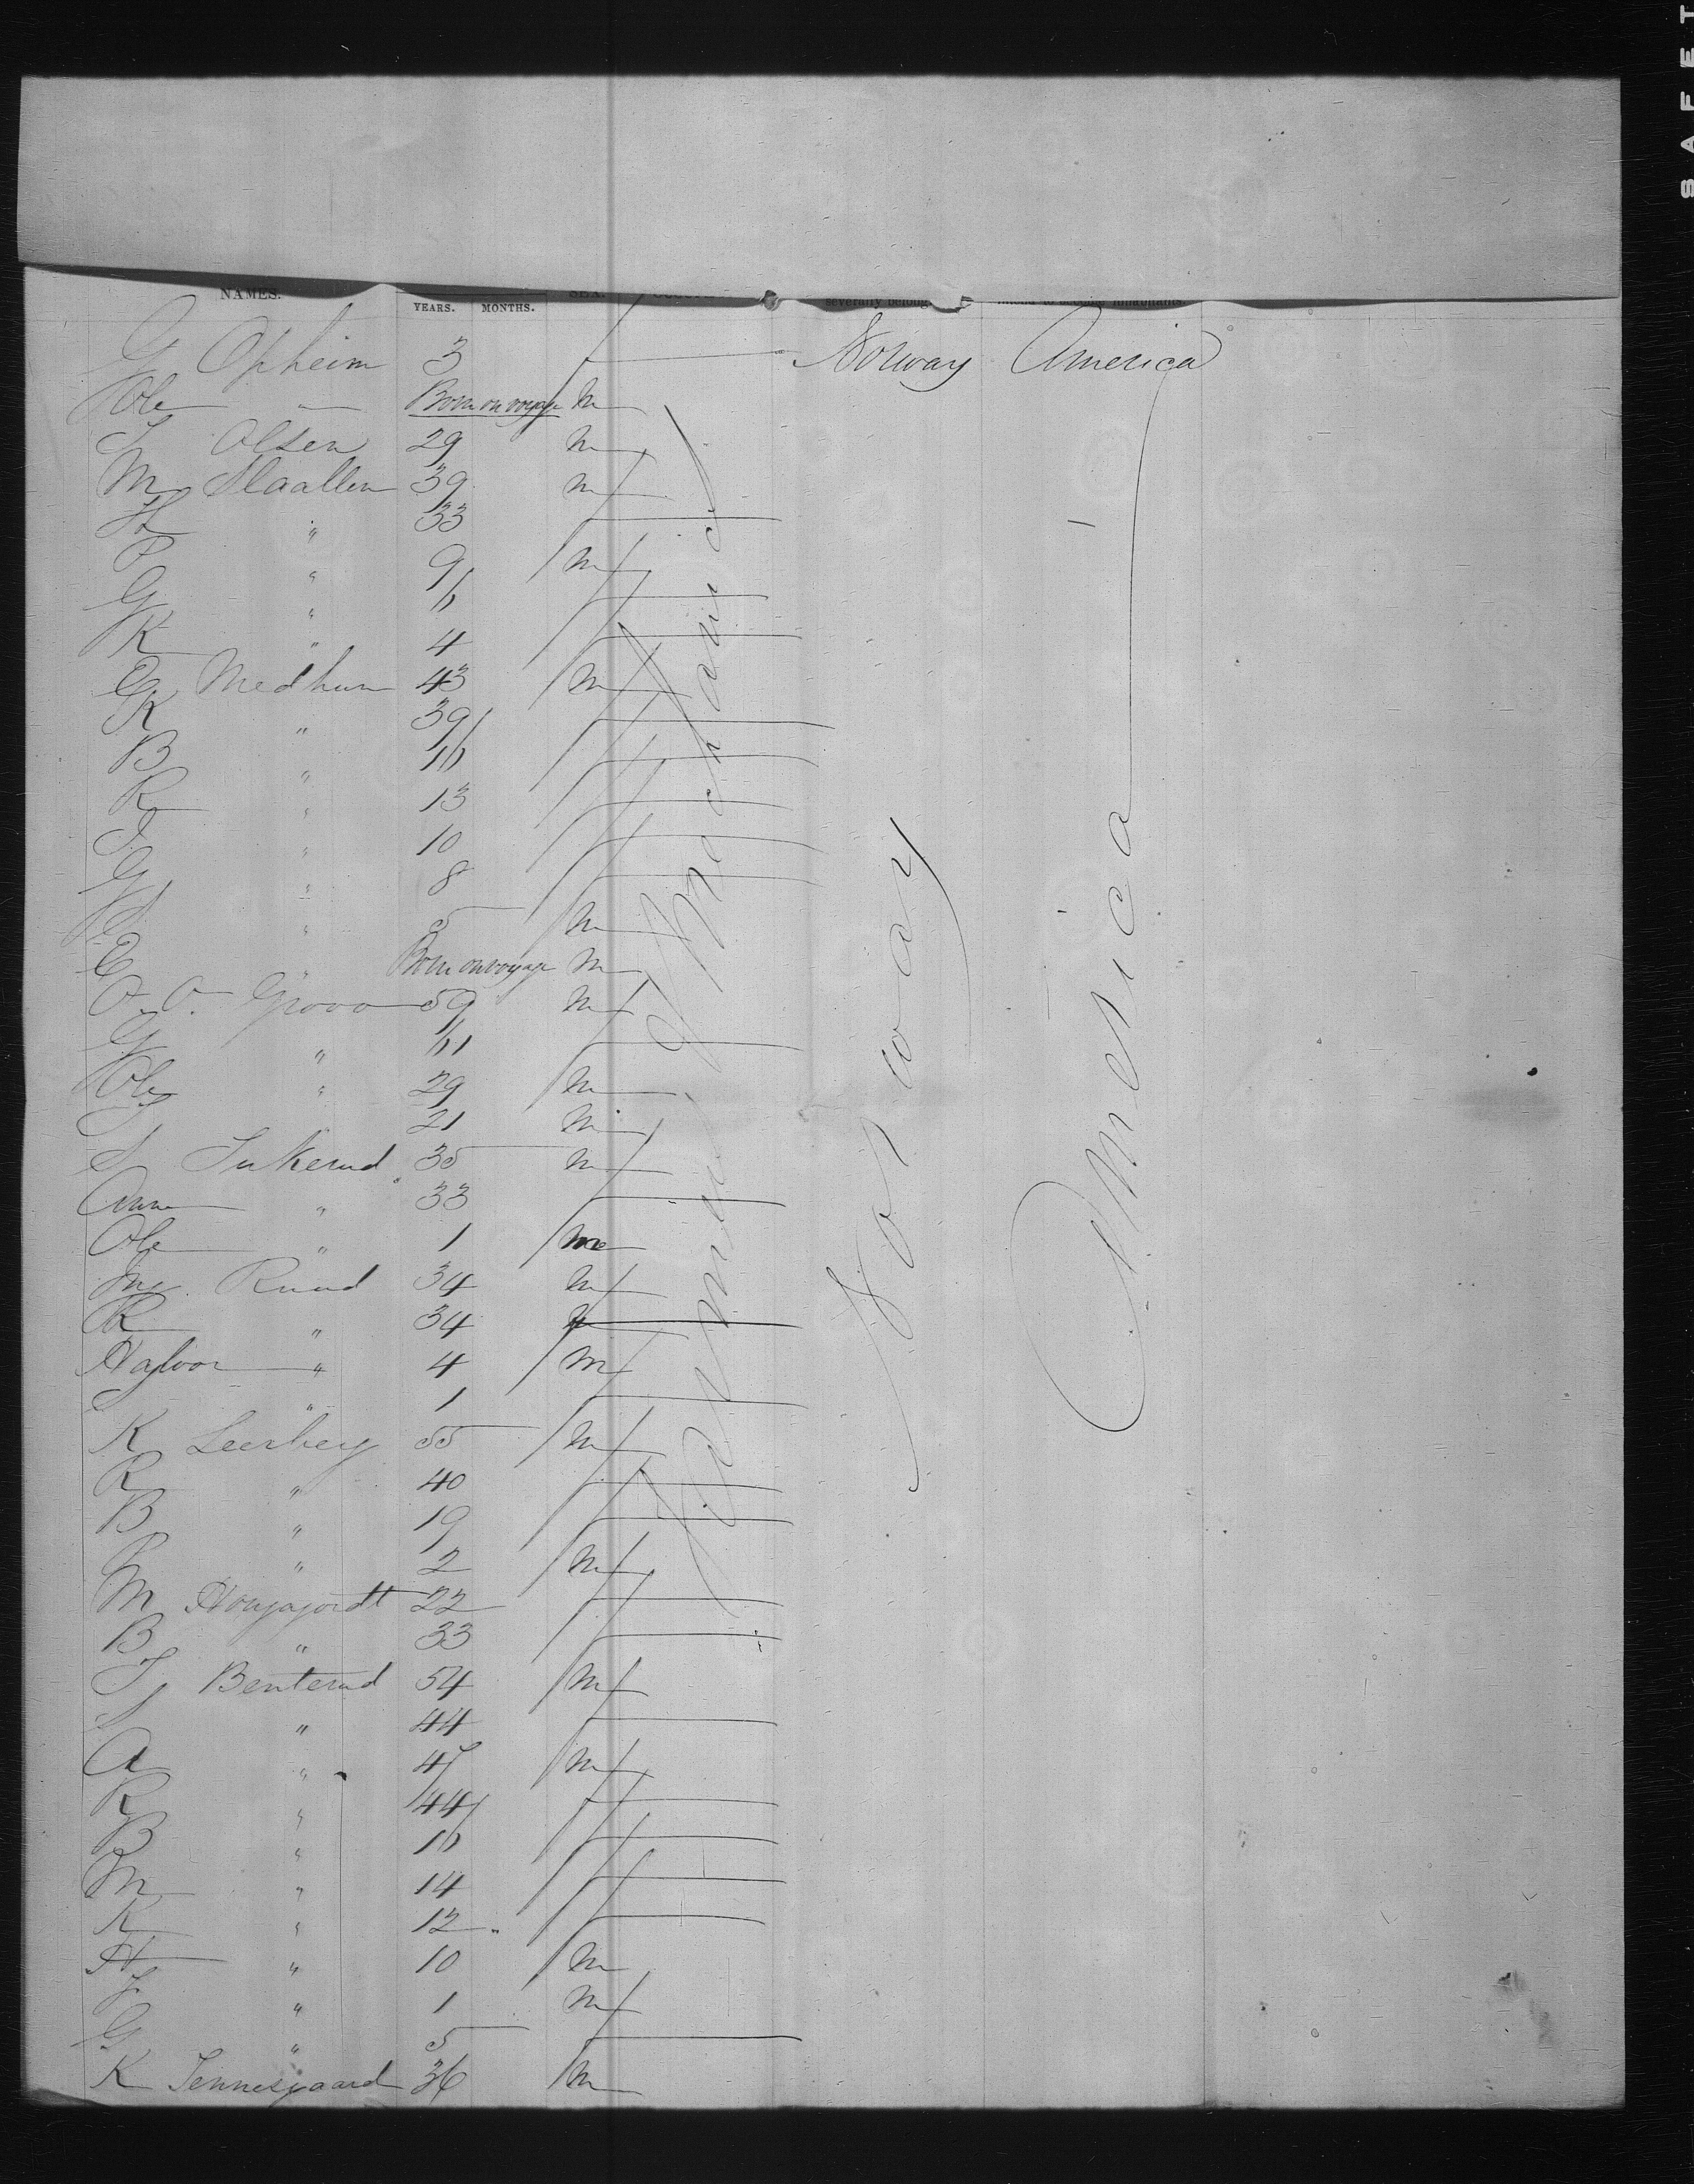 NAMES.
YEARS. MONTHS.
severally belong
G Opheim 3 f Norway America
Ole " Born on voyage m
T Olsen 29 m
M Slaatten 39 m
H " 33 f
P " 9 m
G " 6 f
K " 4 f
G Medhun 43 m
K " 39 f
B " 16 f
R " 13 f
T " 10 f
G " 8 f
" 5 m
E " Born on voyage m
O. O. Grovo 59 m
G " 61 f
Ole " 29 m
T 21 m
S 35 m
Anne " 33 f
Ole " 1 m
M Ruud 34 m
R " 34 f
Halvor " 4 m
S " 1 f
K Leerberg 55 m
R " 40 f
B " 19 f
P " 2 m
M 22 f
B " 33 f
T Benterud 54 m
S " 44 f
A " 47 m
R " 44 f
B " 16 f
M " 14 f
K " 12 f
H " 10 m
T " 1 m
G " 5 f
K Tennesgaard 36 m
Farmers & Mechanics
Norway
America
SAFET